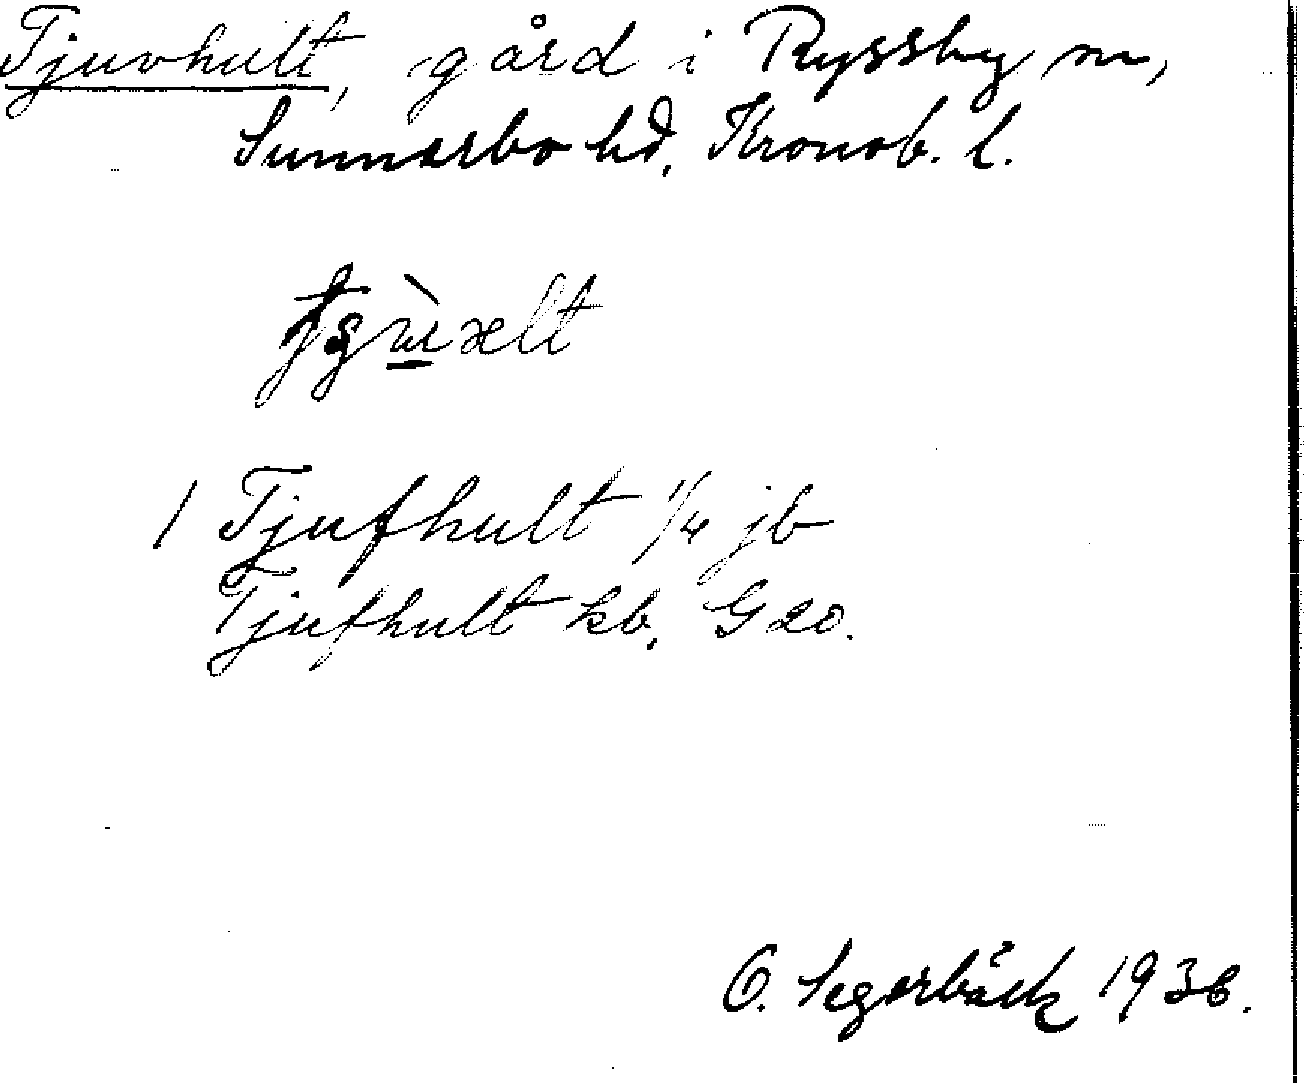 Tjuvhult, gård i Ryssby sn,
Sunnerbo hd, Kronob. l.
1 Tjufhult 1/4 jb
Tjufhult kb. G 20.
O. Segerbäck 1936.